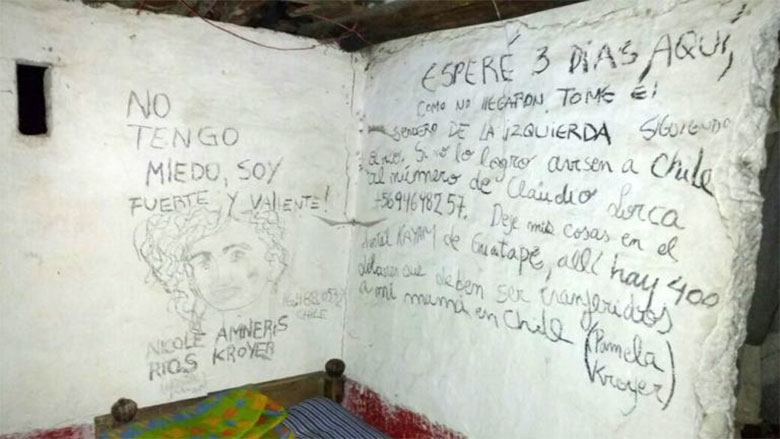 NO
TENGO
MIEDO, SOY
FUERTE Y VALIENTE!
NICOLE AMNERIS
RIOS KROYER
CHILE
ESPERÉ 3 DÍAS, AQUÍ,
COMO NO LLEGARON, TOME El
SENDERO DE LA IZQUIERDA SIGUIENDO
el rio. Si no lo logro avisen a Chile
al número de Claudio Lorca
+5694648257. Deje mis cosas en el
hostel KAYAM de Guatapé, allí hay 400
dolares que deben ser tranferidos
a mi mamá en Chile (Pamela
Kroyer)